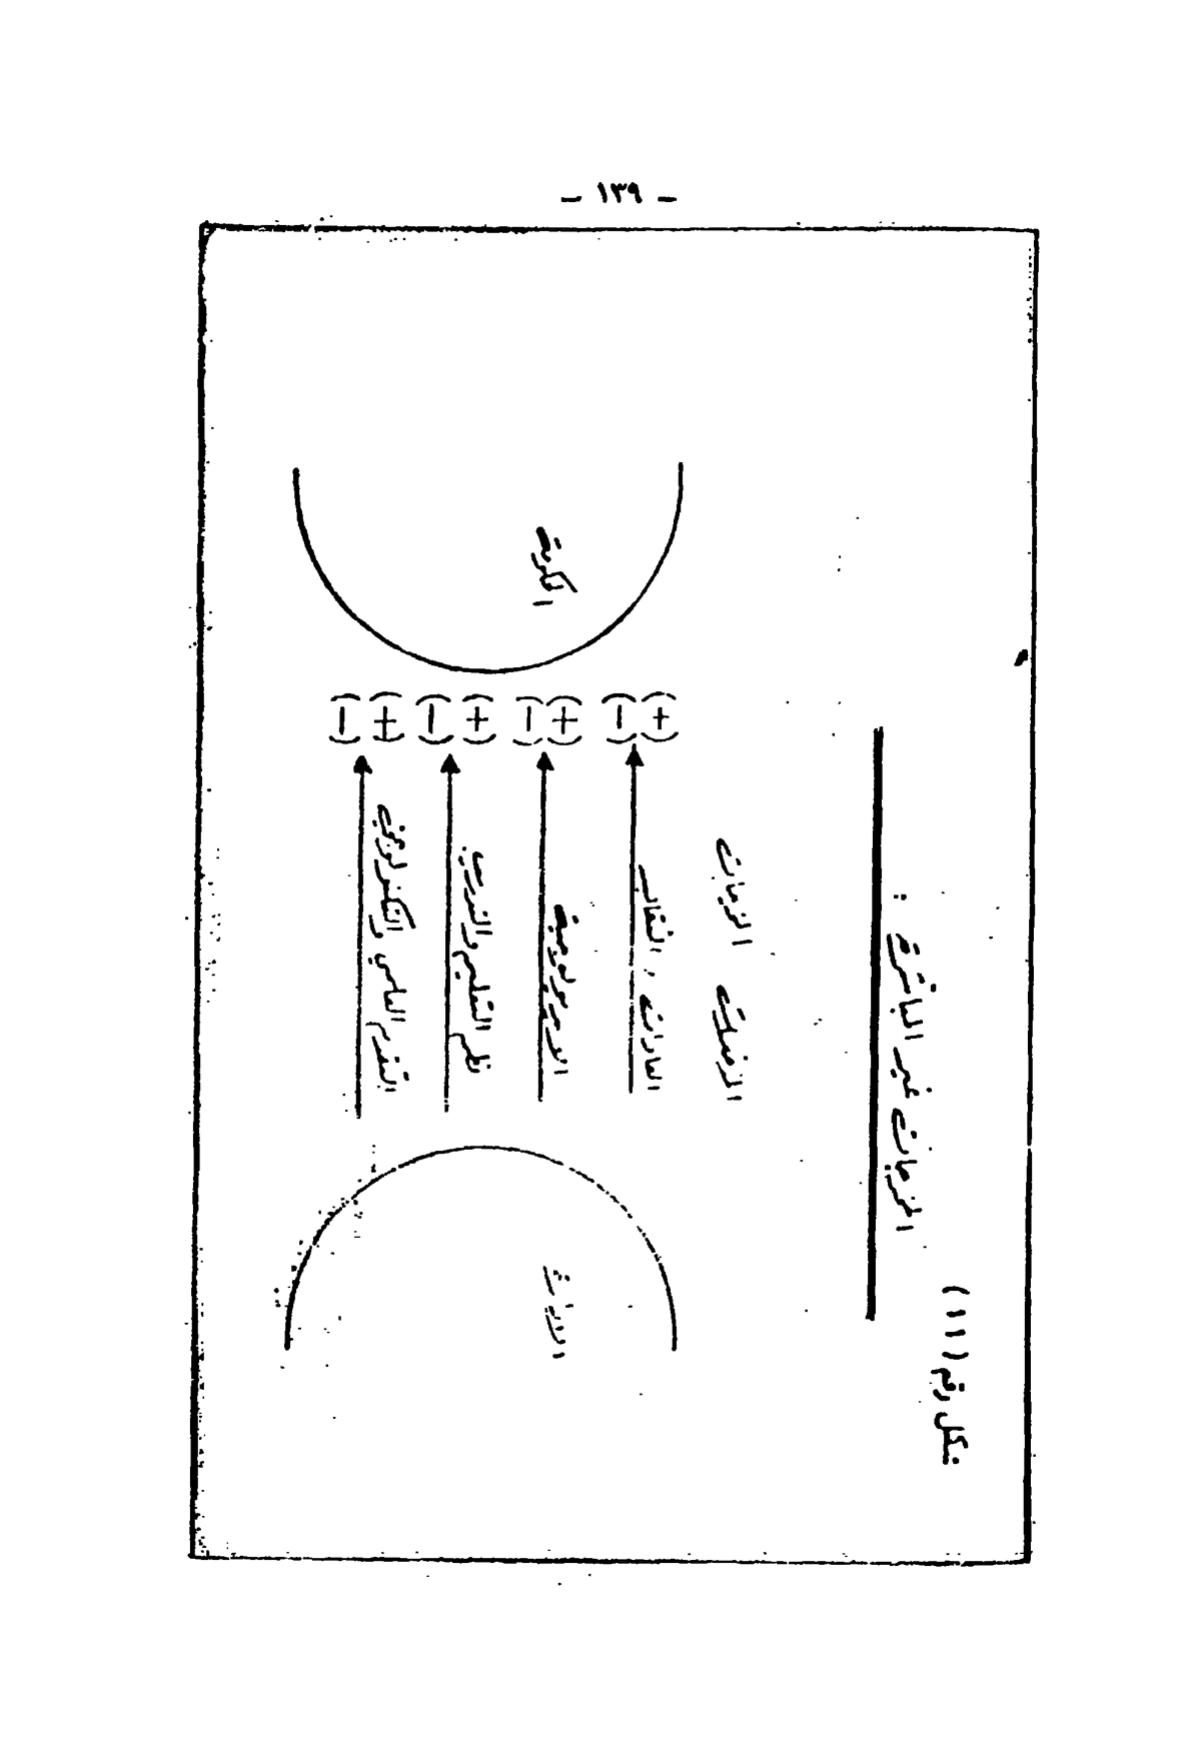 - ١٣٩ -
شكل رقم (١١)
المزجات غير المباشرة :
المزجات
العادات ، التقاليد
الايديولوجية
نظم التعليم والتدريب
التقدم العلمي والتكنولوجي
(+) (-) (+) (-) (+) (-) (+) (-)
الحكومة
الادارة